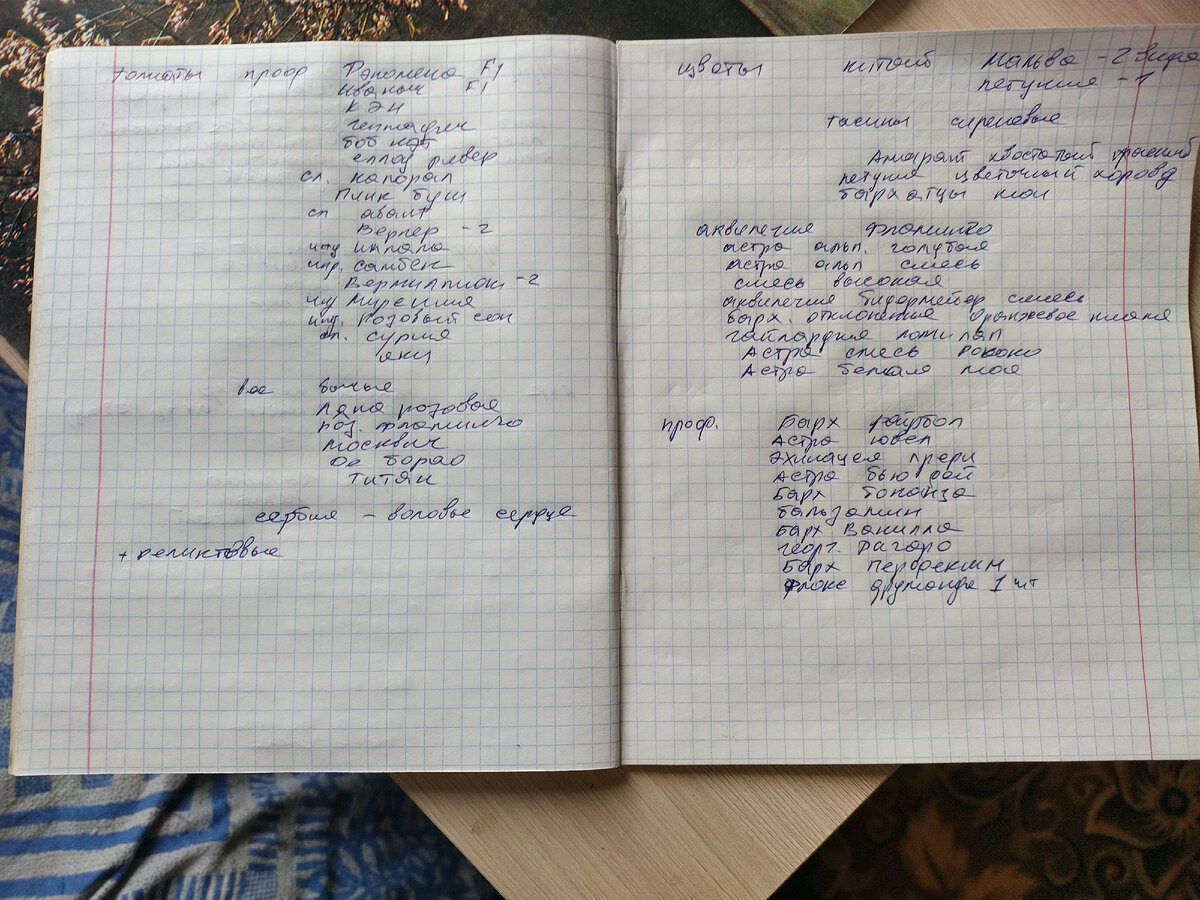 томаты проф Фаломена F1
Иваныч F1
Кэн
Гептадич
боб кэт
еллоу ривер
сл. капорал
Пинк буш
сп авант
Верлер - 2
инд импала
инд. самбек
Вермиллион - 2
инд Муссиния
инд. розовый сон
сл. сурия
яки
бычье
ляна розовая
роз. фламинго
Москвич
Де барао
титан
сербия - воловье сердце
+ реликтовые
цветы китай мальва - 2 вида
петуния - 1
сиреневые
Амарант хвостатый красный
петуния цветочный хоровод
бархатцы мои
аквилегия фламинго
астра альп. голубая
астра альп смесь
смесь высокая
аквилегия бидермейер смесь
барх. отклоненные оранжевое пламя
гайлардия
Астра смесь рококо
Астра белая моя
проф. Барх файрбол
Астра ювел
Эхинацея прери
Астра бью
Барх бонанза
бальзамин
барх Ванилла
георг. Фагаро
Барх Перфекшн
Флокс друмонда 1 шт